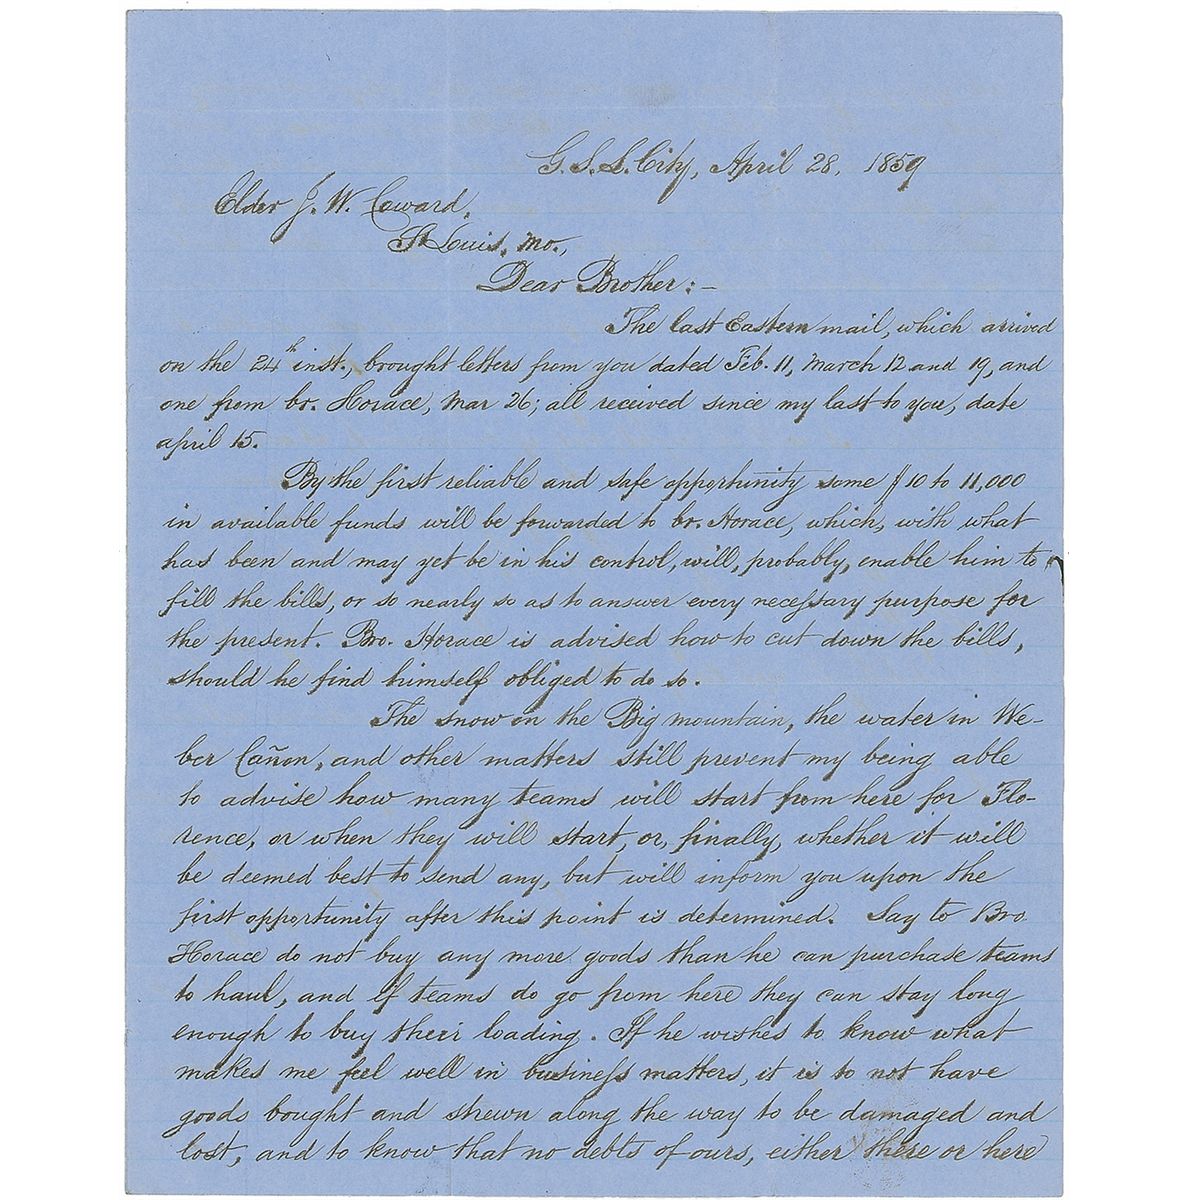 G. S. L. City, April 28, 1859
Elder J. W. Coward,
St Louis, Mo.,
Dear Brother:—
The last Eastern mail, which arrived
on the 24th inst., brought letters from you dated Feb. 11, March 12 and 19, and
one from br. Horace, Mar 26; all received since my last to you, date
april 15.
By the first reliable and safe opportunity some $10 to 11,000
in available funds will be forwarded to br. Horace, which, with what
has been and may yet be in his control, will, probably, enable him to
fill the bills, or so nearly so as to answer every necessary purpose for
the present. Bro. Horace is advised how to cut down the bills,
should he find himself obliged to do so.
The snow on the Big mountain, the water in We-
ber Cañon, and other matters still prevent my being able
to advise how many teams will start from here for Flo-
rence, or when they will start, or, finally, whether it will
be deemed best to send any, but will inform you upon the
first opportunity after this point is determined. Say to Bro
Horace do not buy any more goods than he can purchase teams
to haul, and if teams do go from here they can stay long
enough to buy their loading. If he wishes to know what
makes me feel well in business matters, it is to not have
goods bought and strewn along the way to be damaged and
lost, and to know that no debts of ours, either there or here